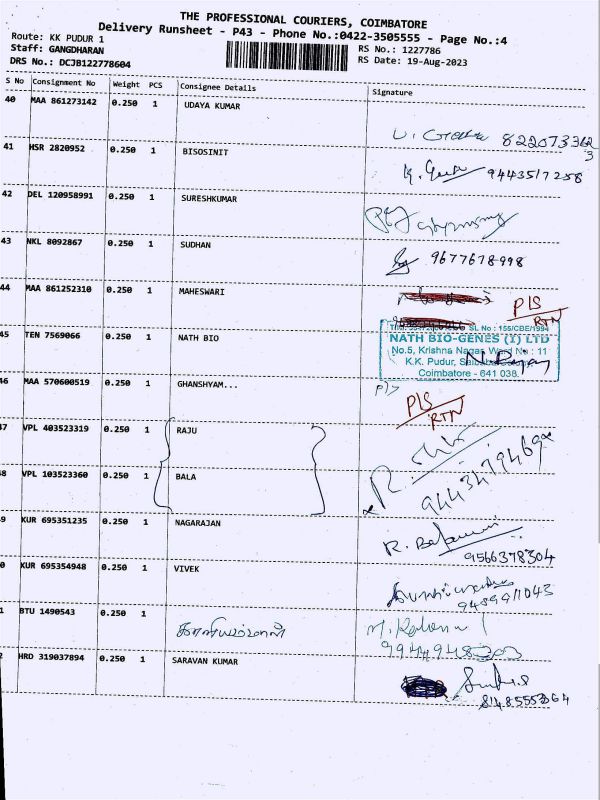 THE PROFESSIONAL COURIERS, COIMBATORE
Delivery Runsheet - P43 - Phone No.:0422-3505555 - Page No.:4
Route: KK PUDUR 1
Staff: GANGDHARAN
DRS No.: DCJB122778604
RS No.: 1227786
RS Date: 19-Aug-2023
S No Consignment No Weight PCS Consignee Details Signature
40 MAA 861273142 0.250 1 UDAYA KUMAR
41 HSR 2820952 0.250 1 BISOSINIT
9443517258
42 DEL 120958991 0.250 1 SURESHKUMAR
43 NKL 8092867 0.250 1 SUDHAN
9677678998
44 MAA 861252310 0.250 1 MAHESWARI
P/S
RTN
SL No : 155/CBE/1994
45 TEN 7569066 0.250 1 NATH BIO
NATH BIO-GENES (I) LTD
No.5, Krishna Nagar, Ward No : 11
K.K. Pudur,
Coimbatore - 641 038.
46 MAA 570600519 1 GHANSHYAM...
P/S
RTN
47 VPL 403523319 0.250 1 RAJU
48 VPL 103523360 0.250 1 BALA
9 KUR 695351235 0.250 1 NAGARAJAN
9566378304
0 KUR 695354948 0.250 1 VIVEK
1 BTU 1490543 0.250 1
2 HRD 319037894 0.250 1 SARAVAN KUMAR